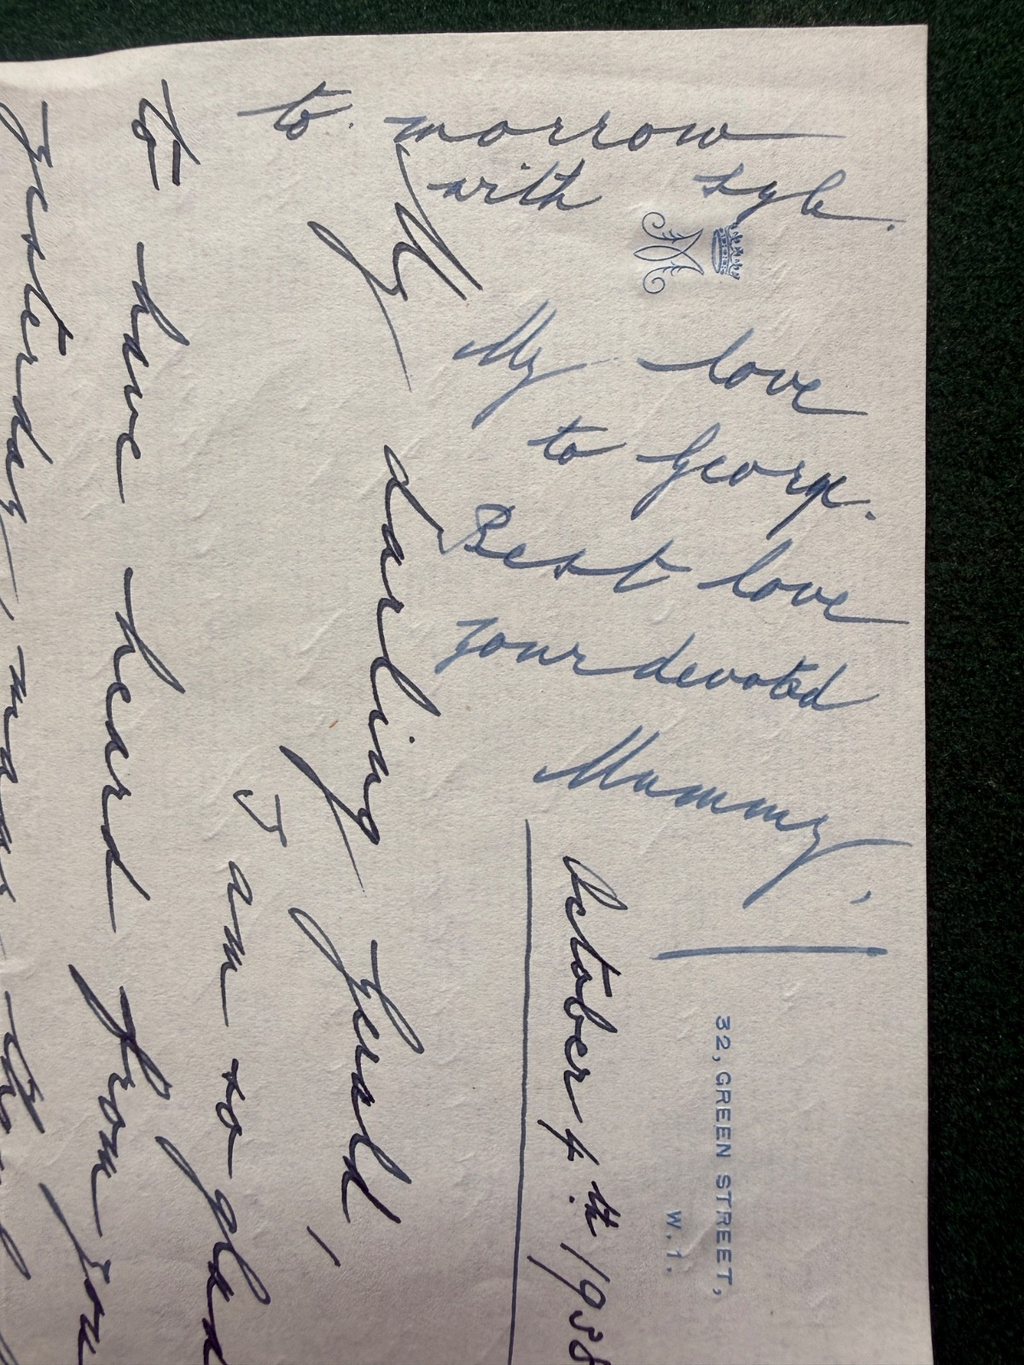 to. morrow
with Syb.
My love
to George.
Best love
your devoted
Mummy.
32, GREEN STREET,
W.1.
October 4th 1938
My darling Gerald,
I am so glad
to have heard from you
yesterday, many